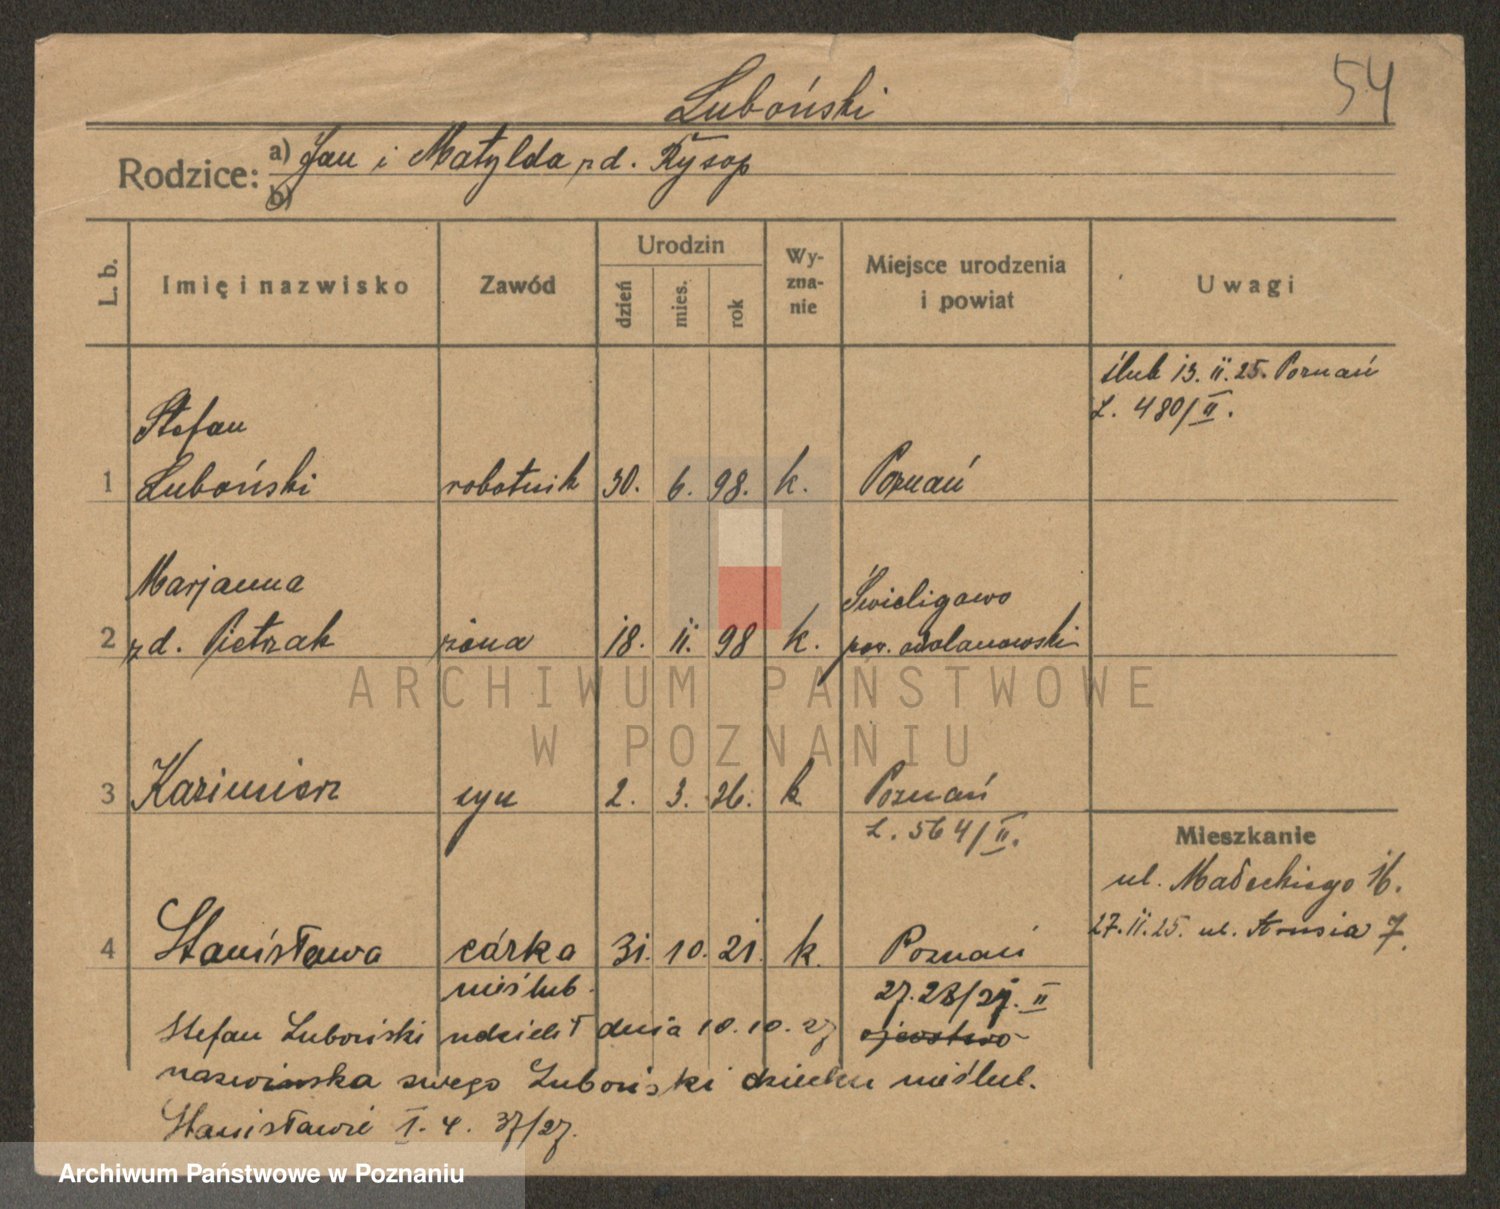 54
Luboński
Rodzice: a) Jan i Matylda zd. Rysop
b)
L. b.
Imię i nazwisko
Zawód
Urodzin
dzień
mies.
rok
Wy-
zna-
nie
Miejsce urodzenia
i powiat
Uwagi
ślub 13. II. 25. Poznań
L. 480/II.
Stefan
1 Luboński robotnik 30. 6. 98. k. Poznań
Marjanna Świeligowo
2 zd. Pietrzak żona 18. 11. 98 k. pow. odolanowski
3 Kazimierz syn 2. 3. 26. k Poznań
L. 564/II.
Mieszkanie
ul. Małeckiego 16.
27. 11. 25. ul. 7.
4 Stanisława córka 31. 10. 21. k. Poznań
nieślub. 27.28/21. II
Stefan Luboński udzielił dnia 10. 10. 27 ojcostwo
nazwiska swego Luboński dziecku nieślub.
Stanisławie I. 4. 37/27.
ARCHIWUM PAŃSTWOWE
W POZNANIU
Archiwum Państwowe w Poznaniu